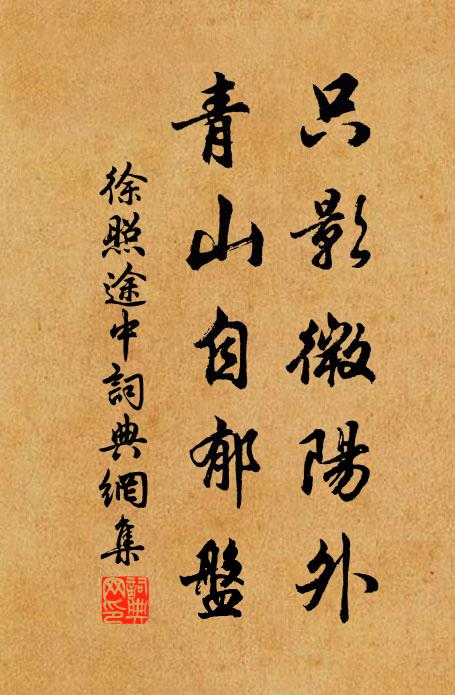 只影微陽外
青山自郁盤
徐照途中詞典網集
詞典網印